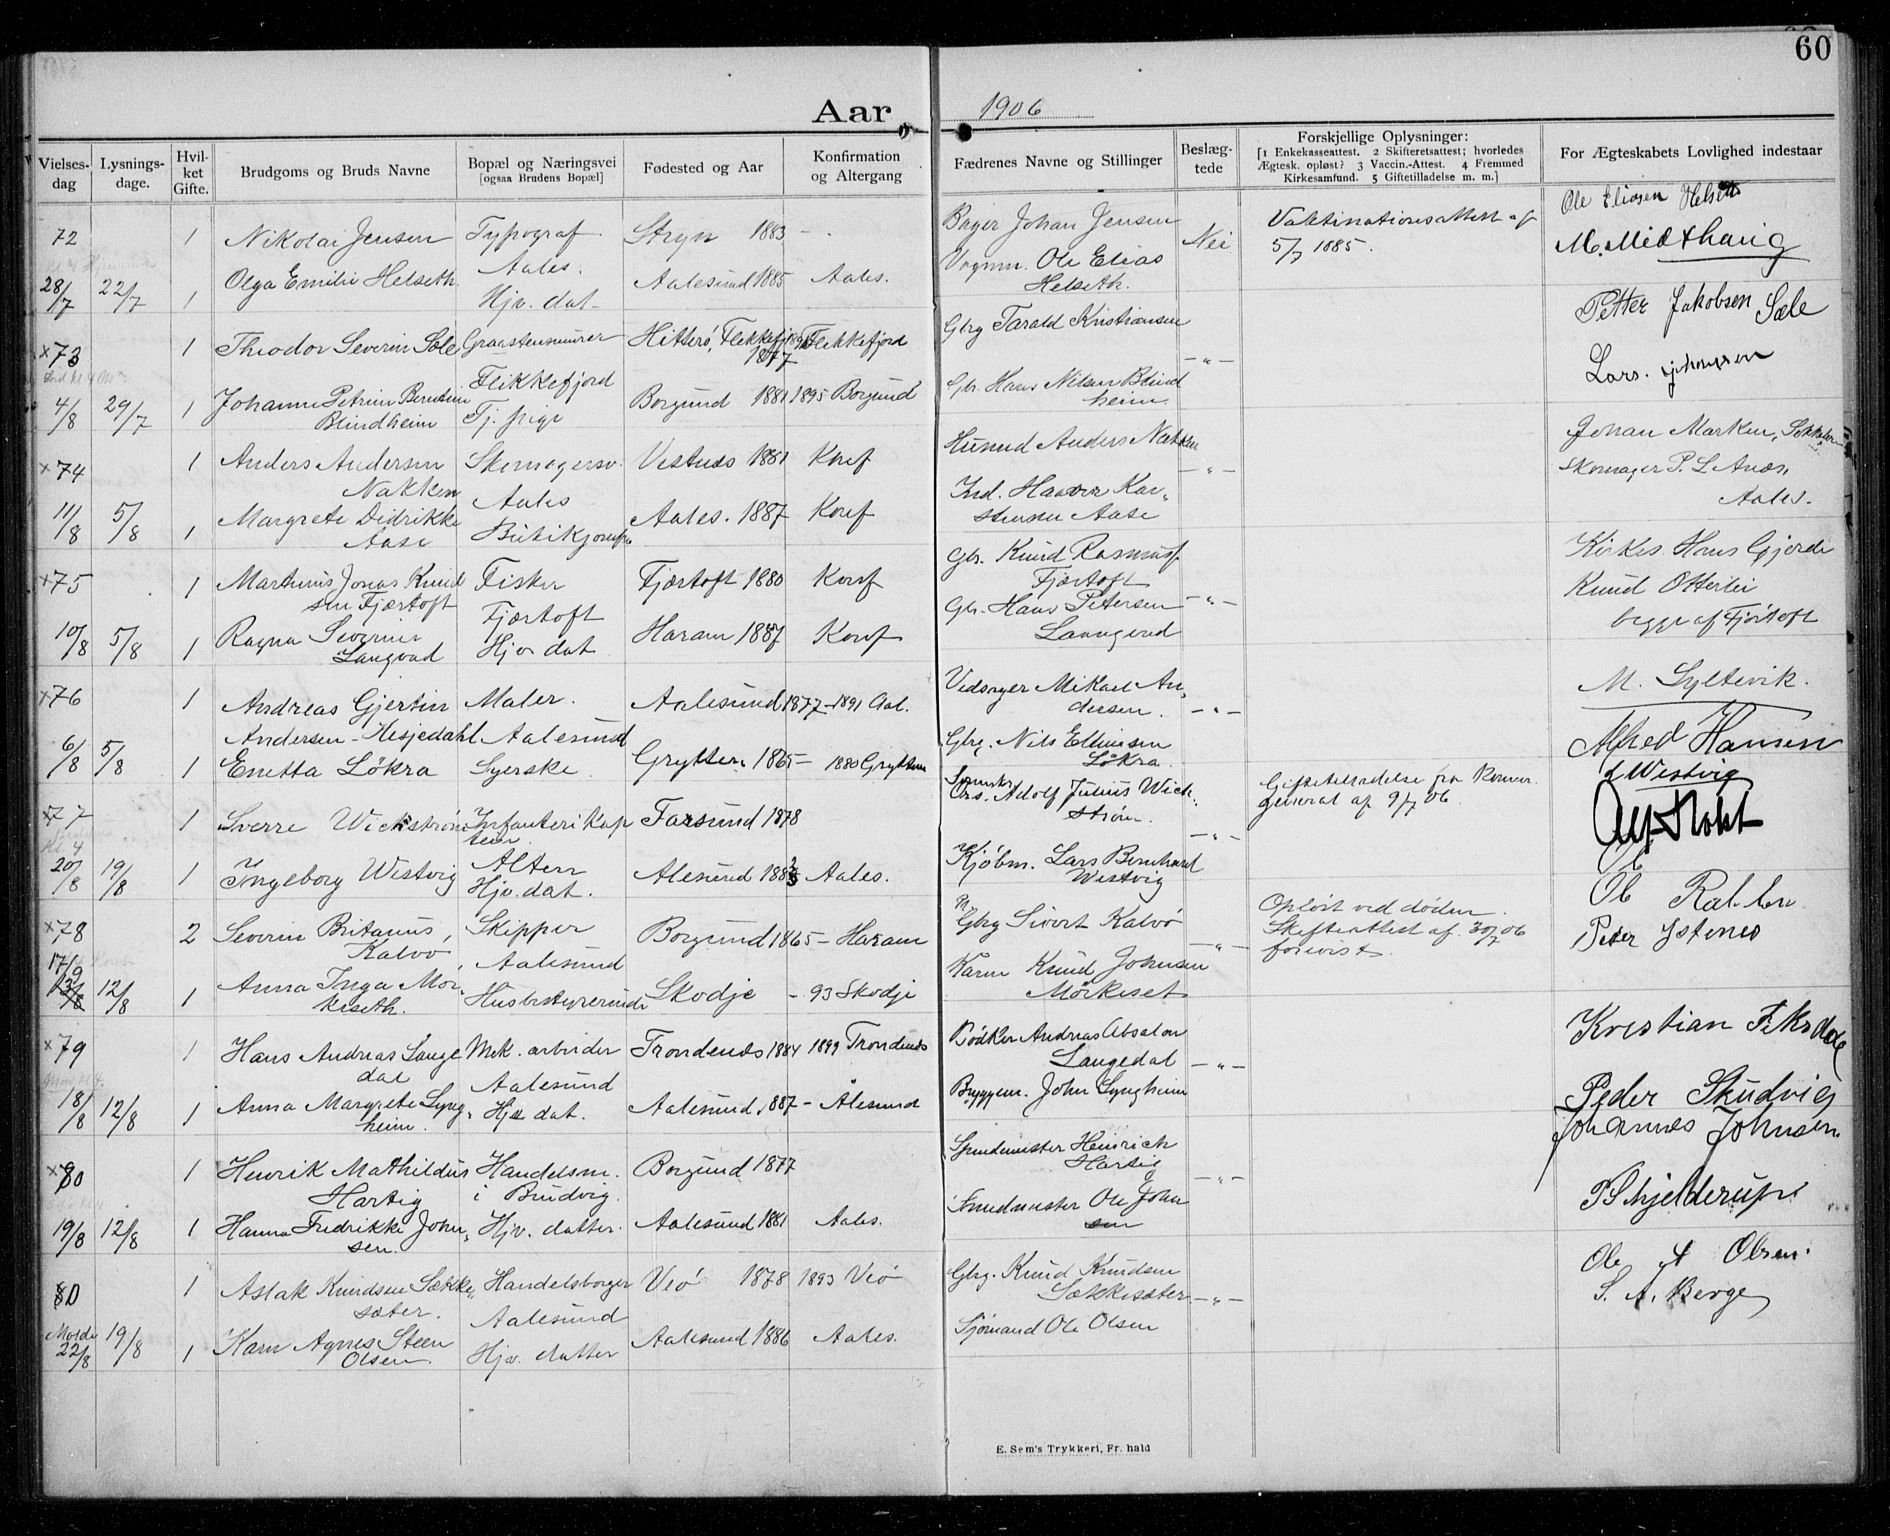 60
Aar 1906
Vielses- dag
Lysnings- dage.
Hvil- ket Gifte.
Brudgoms og Bruds Navne
Bopæl og Næringsvei [ogsaa Brudens Bopæl]
Fødested og Aar
Konfirmation og Altergang
Fædrenes Navne og Stillinger
Beslæg- tede
Forskjellige Oplysninger:
[1 Enkekasseattest. 2 Skifteretsattest; hvorledes Ægtesk. opløst? 3 Vaccin.-Attest. 4 Fremmed Kirkesamfund. 5 Giftetilladelse m. m.]
For Ægteskabets Lovlighed indestaar
72 1 Nikolai Jensen Typograf Stryn 1883 Bager Johan Jensen Nei Vaktinationsattest af 5/7 1885. Ole Eliasen Helseth
Aales. M. Midthaug
28/7 22/7 1 Olga Emilie Helseth Hjv. dat Aalesund 1885 Aales. Vognm. Ole Elias Helseth.
x73 1 Theodor Severin Sæle Graastensmurer Hitterö, Flekkefjord 1877 Flekkefjord Gbrg Tarald Kristiansen —„— Petter Jakobsen Sæle
Flekkefjord Lars
4/8 29/7 1 Johanne Petrine Berntine Blindheim Tj. pige Borgund 1881 1895 Borgund Gbr. Hans Nilsen Blindheim
x74 1 Anders Andersen Nakken Skomagersv. Vestnes 1881 Konf Husmd Anders Nakken —„— Johan Marken,
Aales Skomager P. L. Anæs,
11/8 5/8 1 Margrete Didrikke Aase Aales. 1887 Konf Karstensen Aase Aales.
x75 1 Martinus Jonas Knudsen Fjærtoft Fisker Fjærtoft 1880 Konf Gbr. Knud Rasmus Fjærtoft —„— Kirkes. Hans Gjerde
Fjærtoft Knud Otterlei
10/8 5/8 1 Ragna Severine Langvad Hjv dat Haram 1887 Konf Gbr. Hans Petersen begge af Fjörtoft
x76 1 Andreas Gjertin Andersen - Hesjedahl Maler. Aalesund 1877 - 1891 Aal. Mikael Andersen. —„— M. Syltevik.
Aalesund
6/8 5/8 1 Enetta Løkra Syerske. Grytten 1865 - 1880 Grytten Gbrg. Nils Ellingsen Løkra. Alfred Hansen
x77 1 Sverre Wickstrøm Infanterikaptein Farsund 1878 Adolf Julius Wickstrøm. —„— Giftetilladelse fra general af 9/7 06. L Westvig
Alten
20/8 19/8 1 Ingeborg Westvig Hjv. dat. Alesund 1883 Aales. Kjøbm. Lars Bernhard Westvig
x78 2 Severin Britanus Kalvø Skipper Borgund 1865 - Haram Gbrg Sivert Kalvø —„— Opløst ved døden. Skifteattest af 30/7 06 forevist. Ole
Aalesund Peter Ystenes
17/9 12/8 1 Anna Inga Morkeseth. Husbestyrerinde Skodje - 93 Skodje Knud Johnsen Mørkeset
x79 1 Hans Andreas Langedal Mek. arbeider Trondenes 1884 1899 Trondenes Bødker Andreas Absalon Langedal —„— Kristian Fiksdal
Aalesund
18/8 12/8 1 Anna Margrete Lyngheim. Hjv dat. Aalesund 1887 - Ålesund Bryggem. John Lyngheim Peder Skudvig
Johannes Johnsen
x80 1 Henrik Mathildus Hartig Handelsm. i Brudvig. Borgund 1877 Heinrich Hartig —„— P Schjelderup
19/8 12/8 1 Hanna Fredrikke Johnsen. Hjv. datter. Aalesund 1881 Aales. Smedmester Ole Johnsen
80 1 Aslak Knudsen Sækkesæter. Handelsborger Veö 1878 1893 Veö Gbrg. Knud Knudsen Sækkesæter —„— Ole A Olsen.
Aalesund S. A. Berge
Molde 22/8 19/8 1 Karn Agnes Steen Olsen. Hjv. datter Aalesund 1886 Aales. Sjømand Ole Olsen
E. Sem's Trykkeri, Fr. hald